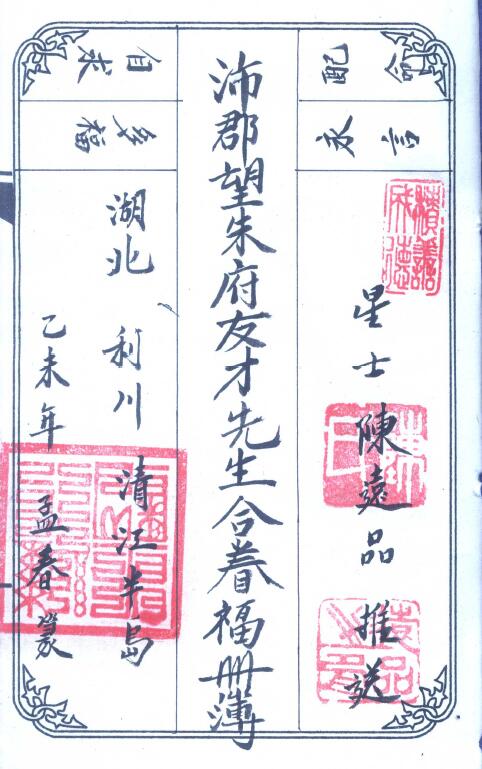 永言
配命
自求
多福
星士陳遠品推送
沛郡望朱府友才先生合眷福册溥
湖北利川清江半島
乙未年孟春篆
積善
成德